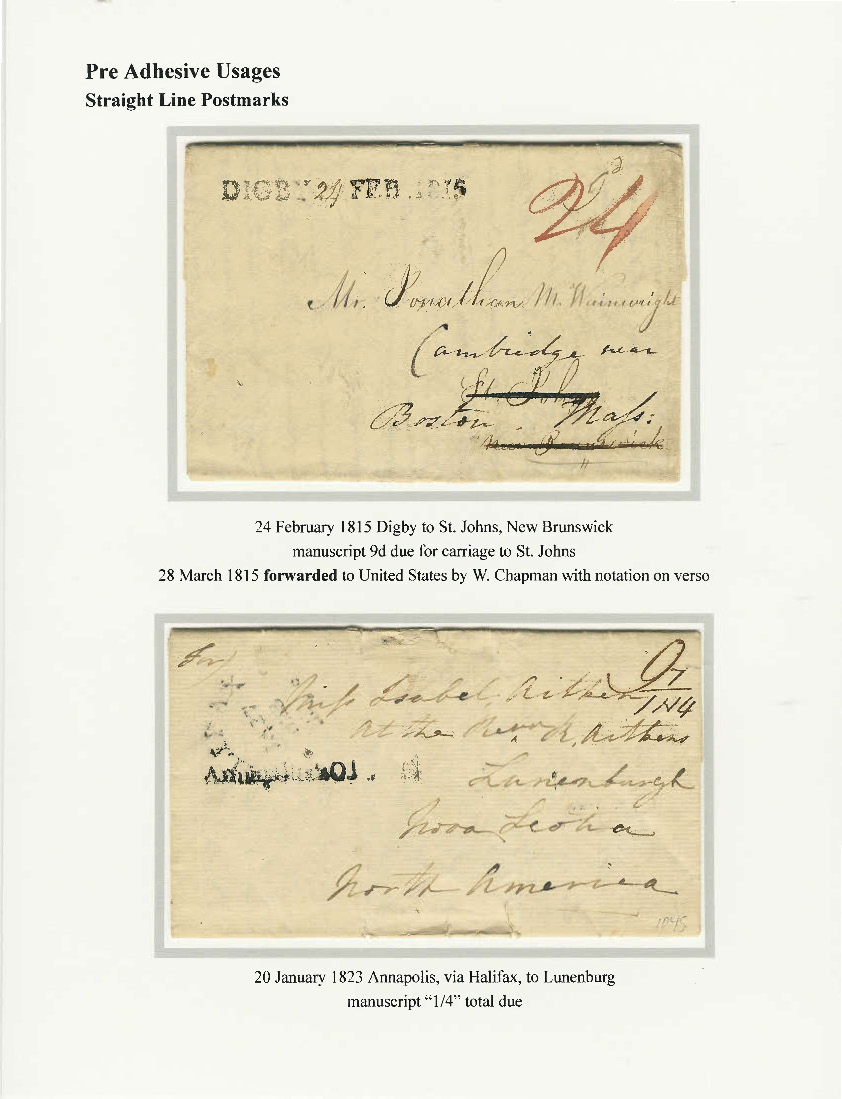 Pre Adhesive Usages
Straight Line Postmarks
DIGBY 24 FEB 1815
9d
24
Mr. Jonathan M. Wainwright
Cambridge near
St. Johns
Boston Maſs:
New Brunswick
24 February 1815 Digby to St. Johns, New Brunswick
manuscript 9d due for carriage to St. Johns
28 March 1815 forwarded to United States by W. Chapman with notation on verso
Miſs Isabel Aitken
At the Revd. R. Aitkens
Lunenburgh
Nova Scotia
North America
1045
20 January 1823 Annapolis, via Halifax, to Lunenburg
manuscript “1/4” total due